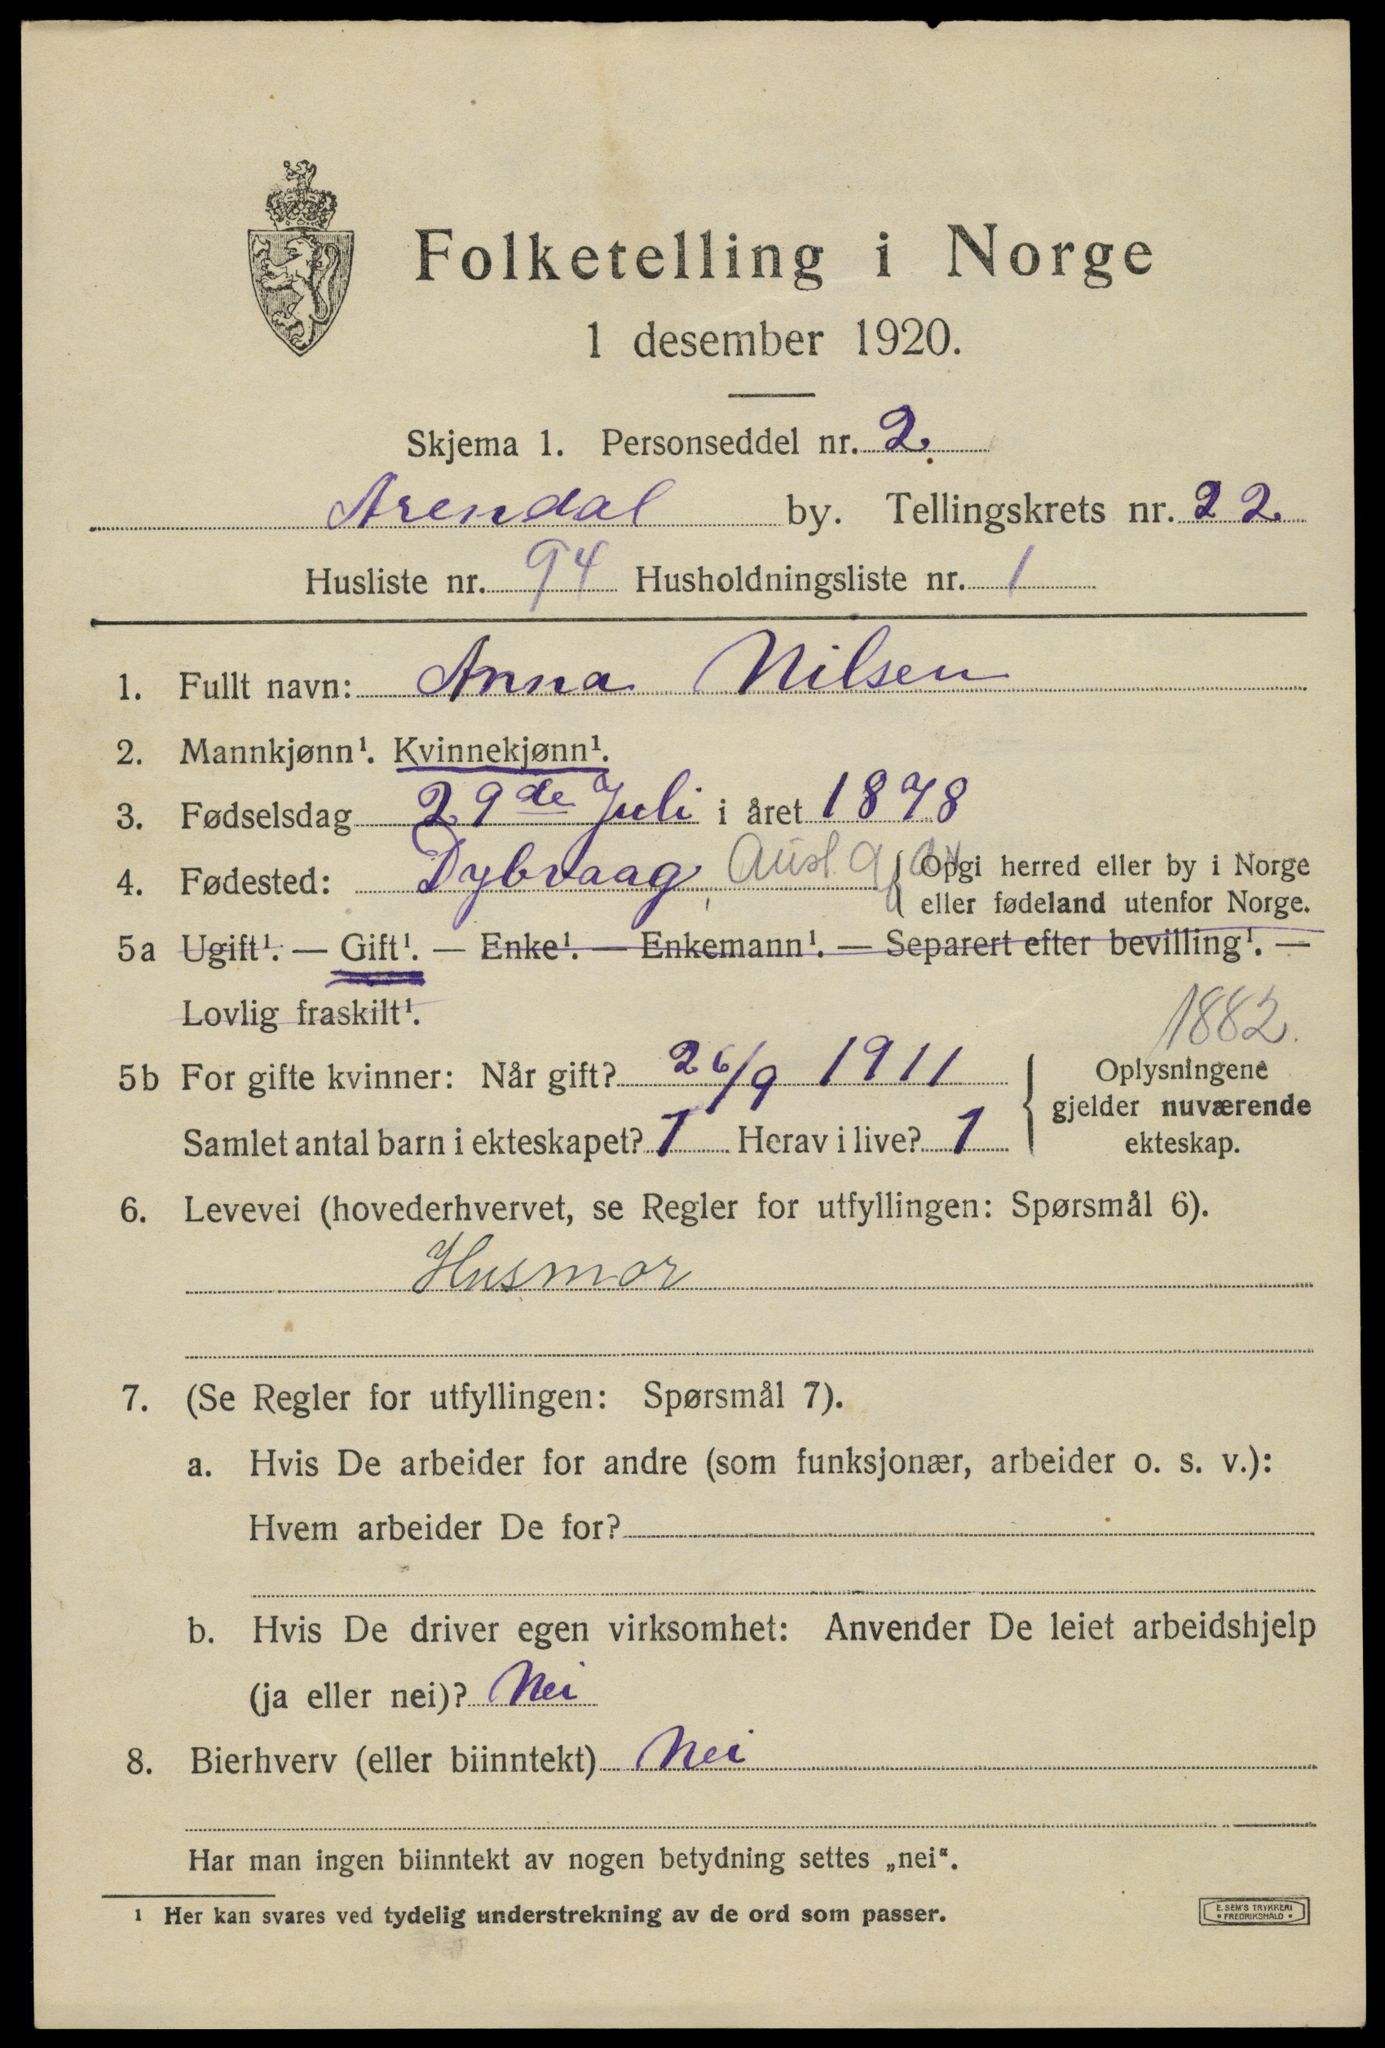 Folketelling i Norge
1 desember 1920.
Skjema 1. Personseddel nr. 2.
Arendal by. Tellingskrets nr. 22.
Husliste nr. 94 Husholdningsliste nr. 1
1. Fullt navn: Anna Nilsen
2. Mannkjønn¹. Kvinnekjønn¹.
3. Fødselsdag 29de Juli i året 1878
4. Fødested: Dybvaag, Aust Agder { Opgi herred eller by i Norge
eller fødeland utenfor Norge.
5a Ugift¹. — Gift¹. — Enke¹. — Enkemann¹. — Separert efter bevilling¹. —
Lovlig fraskilt¹.
1882.
5b For gifte kvinner: Når gift? 26/9 1911 { Oplysningene
gjelder nuværende
Samlet antal barn i ekteskapet? 1 Herav i live? 1 ekteskap.
6. Levevei (hovederhvervet, se Regler for utfyllingen: Spørsmål 6).
Husmor
7. (Se Regler for utfyllingen: Spørsmål 7).
a. Hvis De arbeider for andre (som funksjonær, arbeider o. s. v.):
Hvem arbeider De for?
b. Hvis De driver egen virksomhet: Anvender De leiet arbeidshjelp
(ja eller nei)? Nei
8. Bierhverv (eller biinntekt) Nei
Har man ingen biinntekt av nogen betydning settes „nei".
¹ Her kan svares ved tydelig understrekning av de ord som passer.
E. SEM'S TRYKKERI
• FREDRIKSHALD •